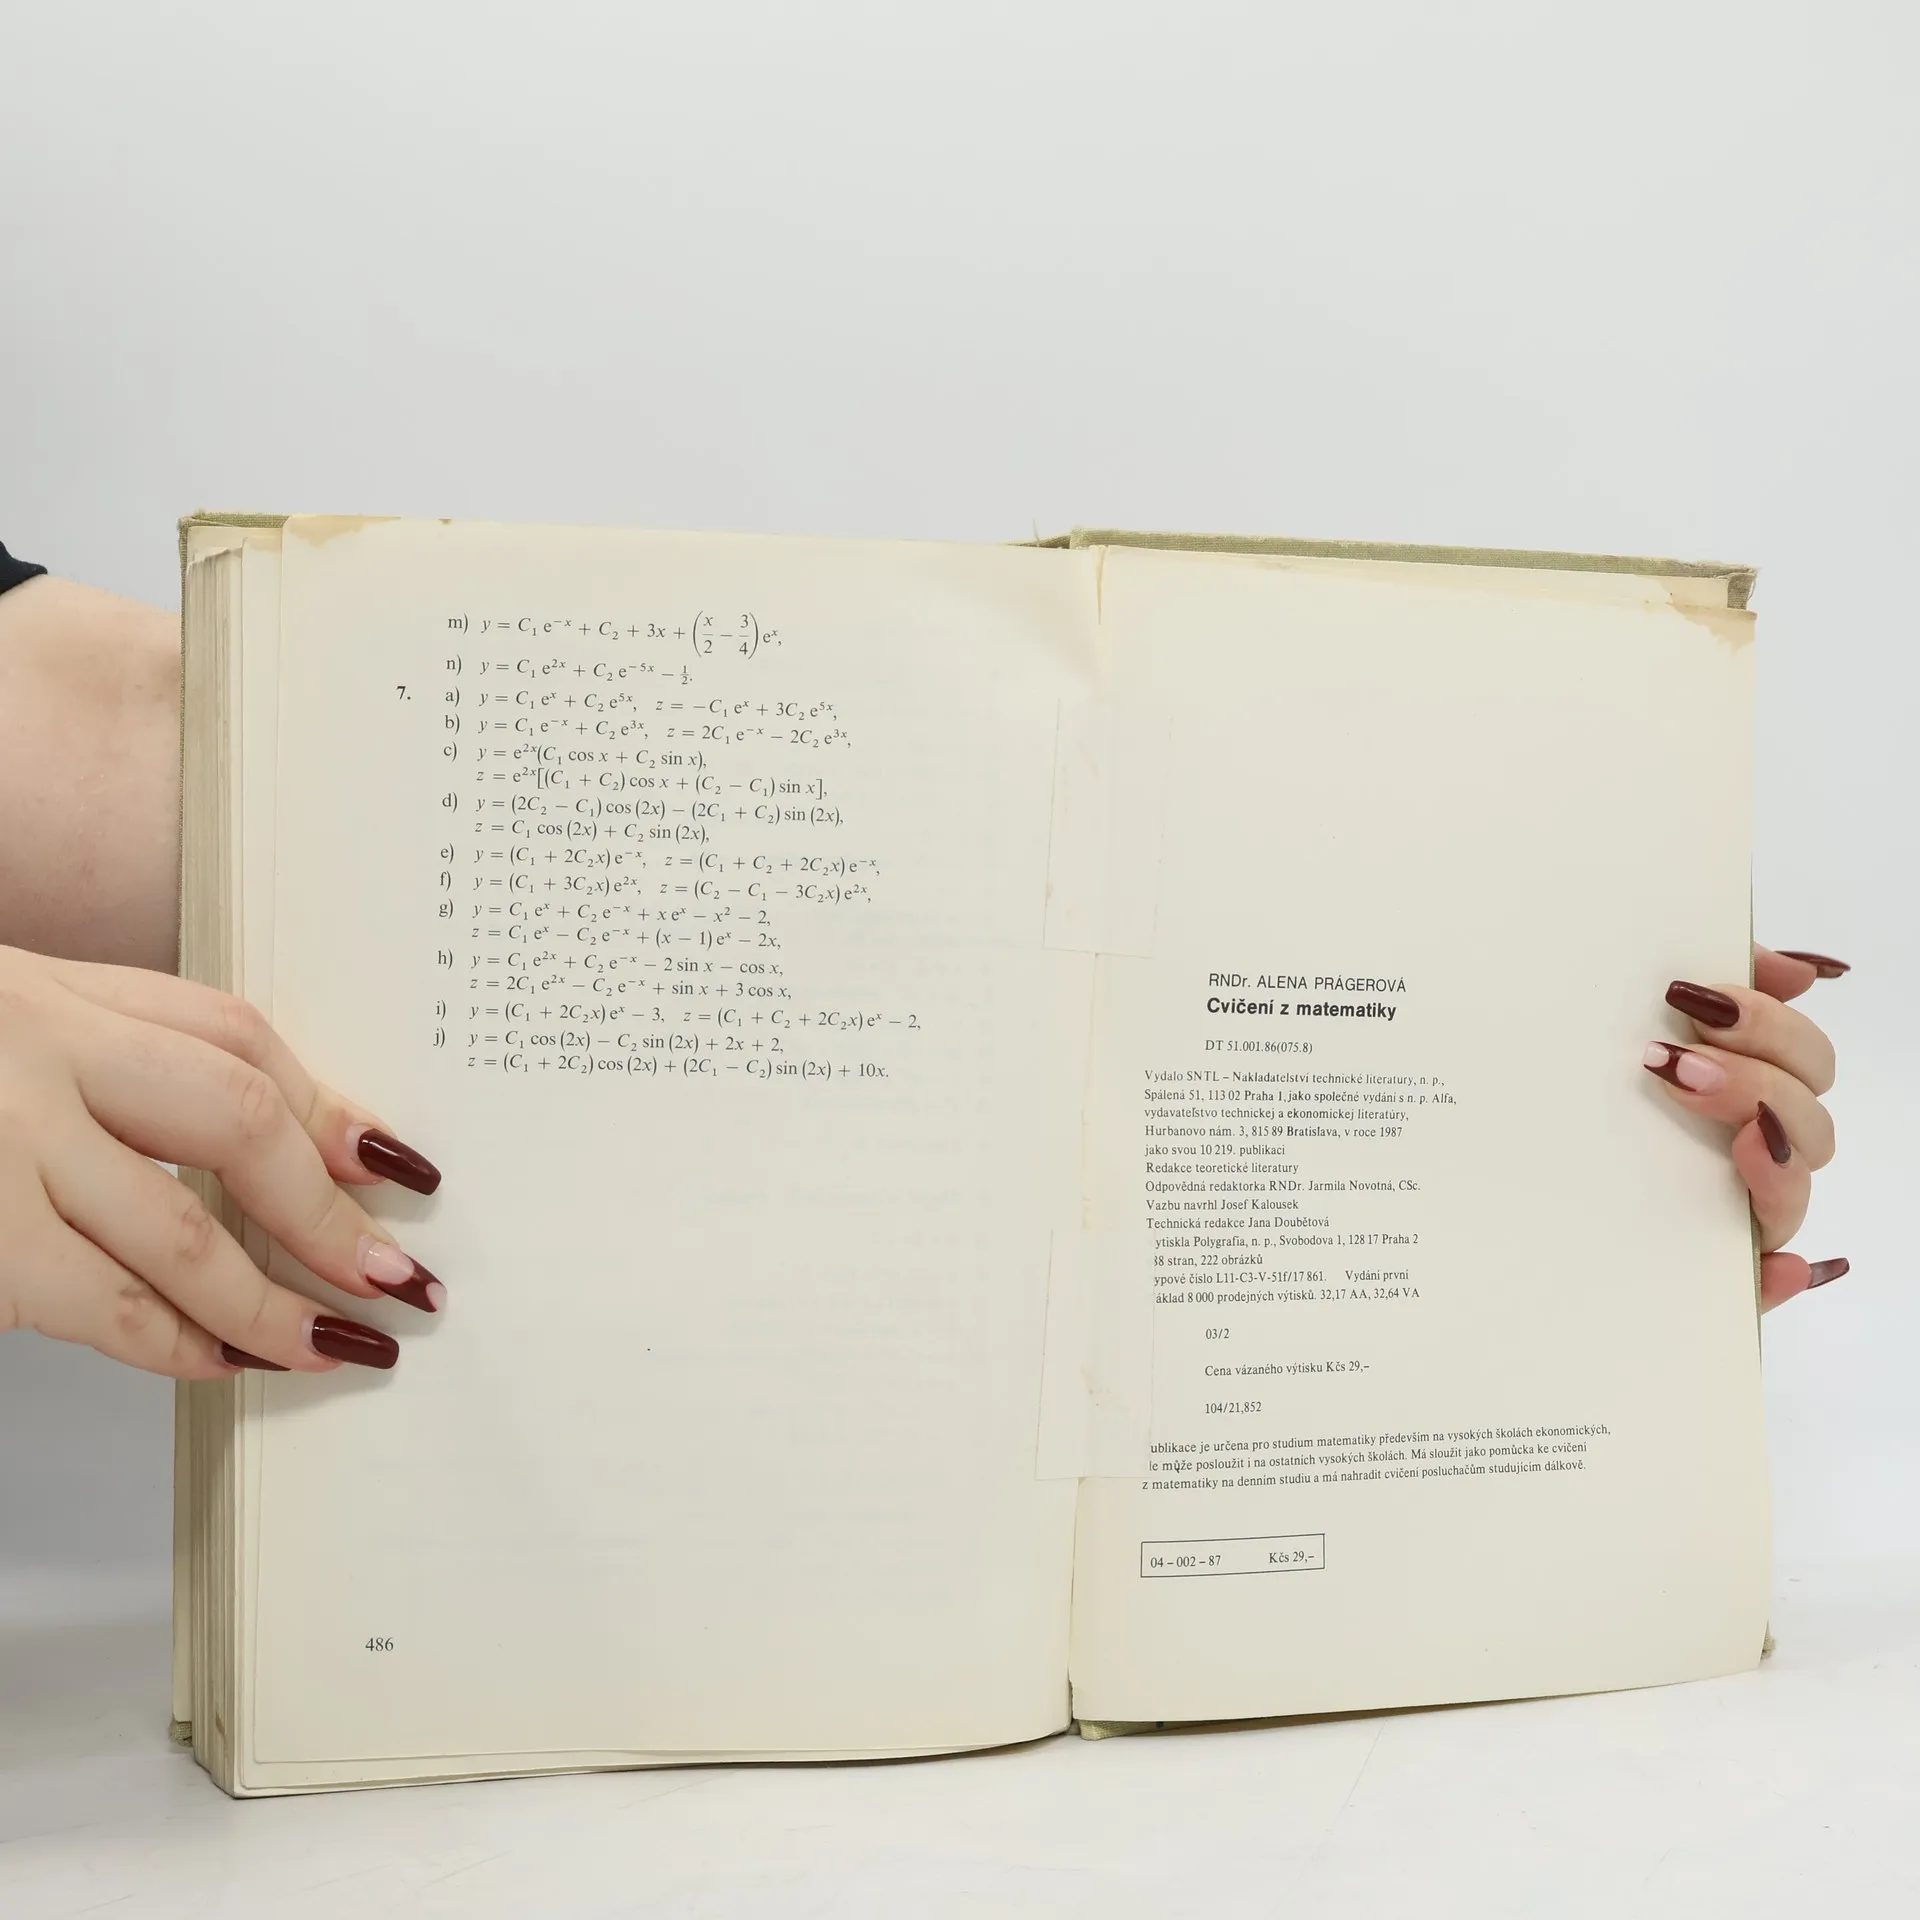 m) y = C₁ e⁻ˣ + C₂ + 3x + (x/2 − 3/4) eˣ,
n) y = C₁ e²ˣ + C₂ e⁻⁵ˣ − ½.
7. a) y = C₁ eˣ + C₂ e⁵ˣ, z = −C₁ eˣ + 3C₂ e⁵ˣ,
b) y = C₁ e⁻ˣ + C₂ e³ˣ, z = 2C₁ e⁻ˣ − 2C₂ e³ˣ,
c) y = e²ˣ(C₁ cos x + C₂ sin x),
z = e²ˣ[(C₁ + C₂) cos x + (C₂ − C₁) sin x],
d) y = (2C₂ − C₁) cos (2x) − (2C₁ + C₂) sin (2x),
z = C₁ cos (2x) + C₂ sin (2x),
e) y = (C₁ + 2C₂x) e⁻ˣ, z = (C₁ + C₂ + 2C₂x) e⁻ˣ,
f) y = (C₁ + 3C₂x) e²ˣ, z = (C₂ − C₁ − 3C₂x) e²ˣ,
g) y = C₁ eˣ + C₂ e⁻ˣ + x eˣ − x² − 2,
z = C₁ eˣ − C₂ e⁻ˣ + (x − 1) eˣ − 2x,
h) y = C₁ e²ˣ + C₂ e⁻ˣ − 2 sin x − cos x,
z = 2C₁ e²ˣ − C₂ e⁻ˣ + sin x + 3 cos x,
i) y = (C₁ + 2C₂x) eˣ − 3, z = (C₁ + C₂ + 2C₂x) eˣ − 2,
j) y = C₁ cos (2x) − C₂ sin (2x) + 2x + 2,
z = (C₁ + 2C₂) cos (2x) + (2C₁ − C₂) sin (2x) + 10x.
486
RNDr. ALENA PRÁGEROVÁ
Cvičení z matematiky
DT 51.001.86(075.8)
Vydalo SNTL – Nakladatelství technické literatury, n. p.,
Spálená 51, 113 02 Praha 1, jako společné vydání s n. p. Alfa,
vydavateľstvo technickej a ekonomickej literatúry,
Hurbanovo nám. 3, 815 89 Bratislava, v roce 1987
jako svou 10 219. publikaci
Redakce teoretické literatury
Odpovědná redaktorka RNDr. Jarmila Novotná, CSc.
Vazbu navrhl Josef Kalousek
Technická redakce Jana Doubětová
ytiskla Polygrafia, n. p., Svobodova 1, 128 17 Praha 2
88 stran, 222 obrázků
ypové číslo L11-C3-V-51f/17 861. Vydání první
áklad 8 000 prodejných výtisků. 32,17 AA, 32,64 VA
03/2
Cena vázaného výtisku Kčs 29,–
104/21,852
ublikace je určena pro studium matematiky především na vysokých školách ekonomických,
le může posloužit i na ostatních vysokých školách. Má sloužit jako pomůcka ke cvičení
z matematiky na denním studiu a má nahradit cvičení posluchačům studujícím dálkově.
04 – 002 – 87 Kčs 29,–